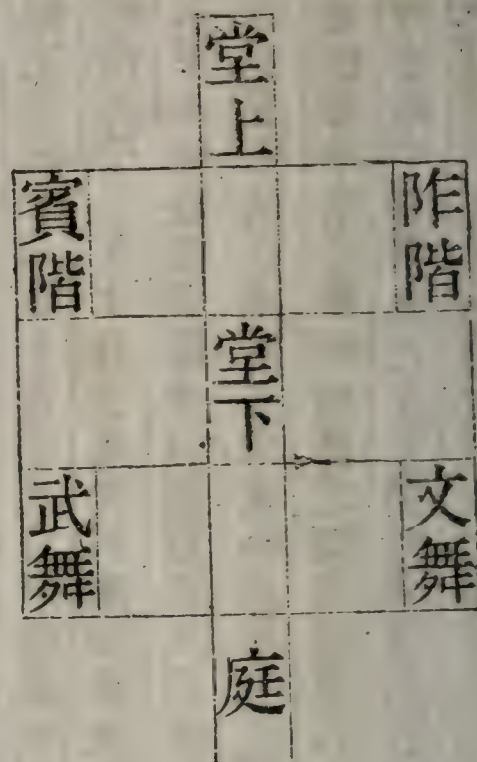 堂上
阼階
賓階
堂下
文舞
武舞
庭